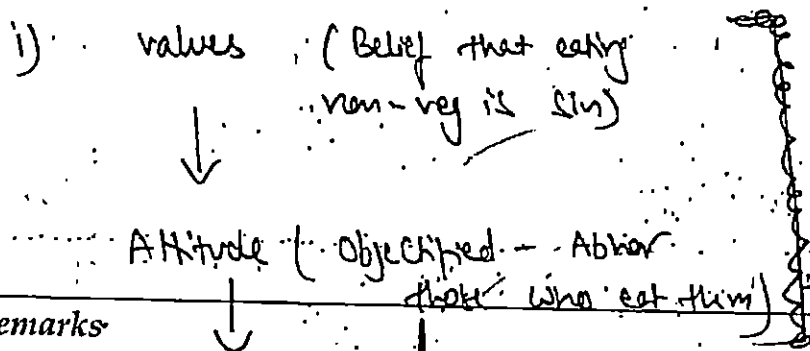 i) values (Belief that eating
non-veg is sin)
↓
Attitude (Objectified - Abhor
those who eat them)
emarks
↓